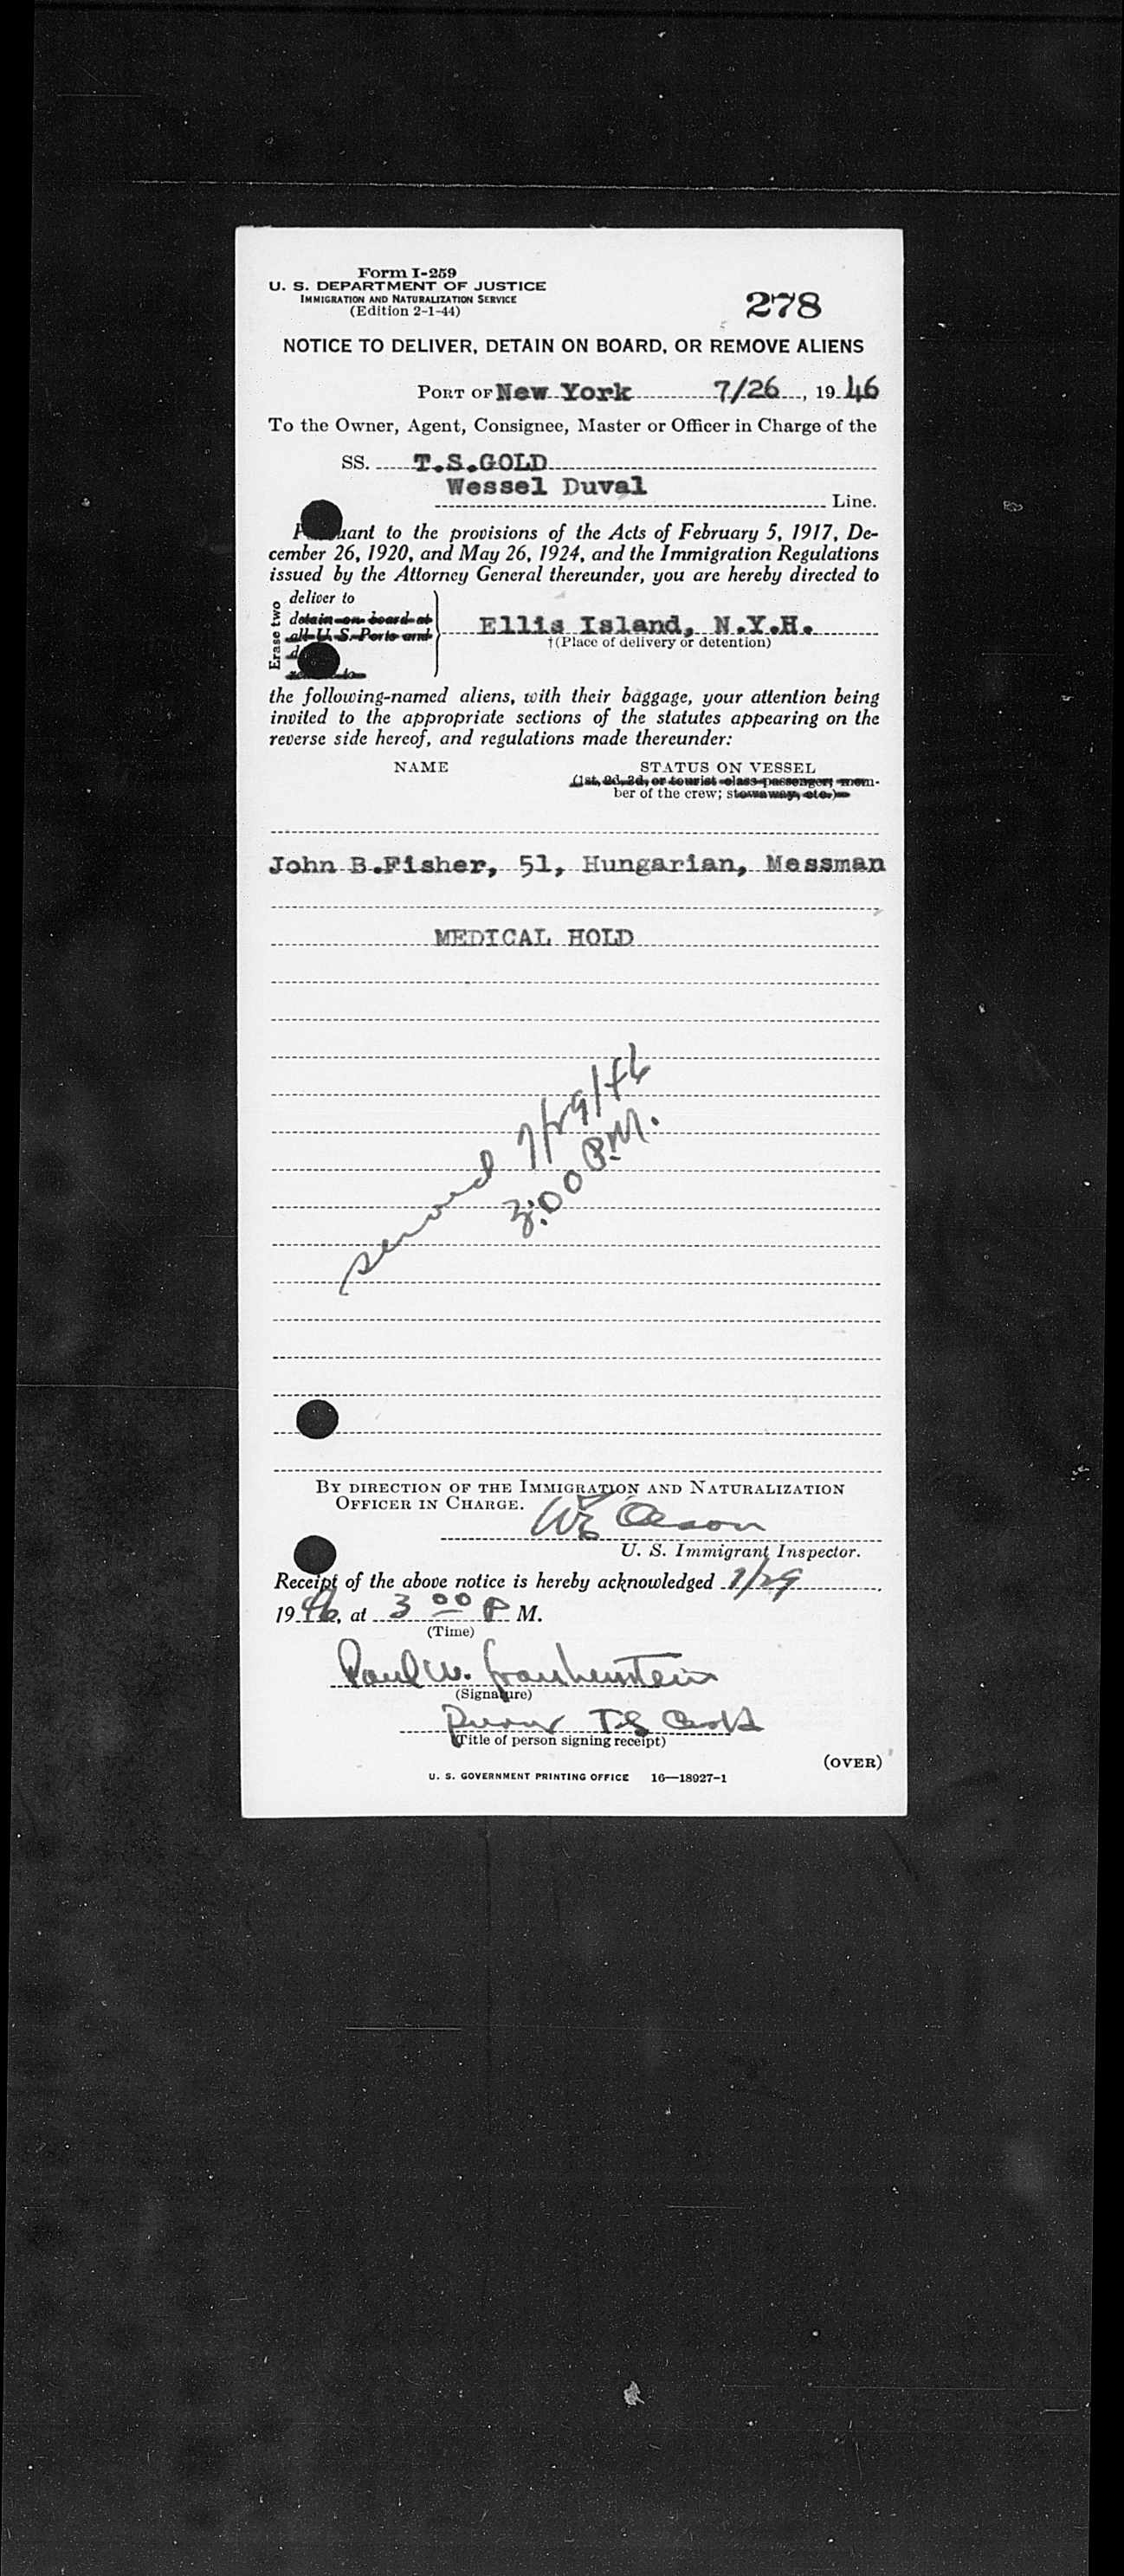 Form I-259
U. S. DEPARTMENT OF JUSTICE
IMMIGRATION AND NATURALIZATION SERVICE
(Edition 2-1-44)
278
NOTICE TO DELIVER, DETAIN ON BOARD, OR REMOVE ALIENS
PORT OF New York 7/26, 19 46
To the Owner, Agent, Consignee, Master or Officer in Charge of the
SS. T.S.GOLD
Wessel Duval Line.
to the provisions of the Acts of February 5, 1917, De-
cember 26, 1920, and May 26, 1924, and the Immigration Regulations
issued by the Attorney General thereunder, you are hereby directed to
Erase two
deliver to
detain on board at
all U. S. Ports and
Ellis Island, N.Y.H.
†(Place of delivery or detention)
the following-named aliens, with their baggage, your attention being
invited to the appropriate sections of the statutes appearing on the
reverse side hereof, and regulations made thereunder:
NAME STATUS ON VESSEL
(1st, 2d, 3d, or tourist class passenger; mem-
ber of the crew; stowaway, etc.)
John B.Fisher, 51, Hungarian, Messman
MEDICAL HOLD
served 7/29/46
3:00 P.M.
BY DIRECTION OF THE IMMIGRATION AND NATURALIZATION
OFFICER IN CHARGE.
U. S. Immigrant Inspector.
Receipt of the above notice is hereby acknowledged 7/29,
19 46, at 3 00 P M.
(Time)
Paul W.
(Signature)
(Title of person signing receipt)
(OVER)
U. S. GOVERNMENT PRINTING OFFICE 16—18927-1